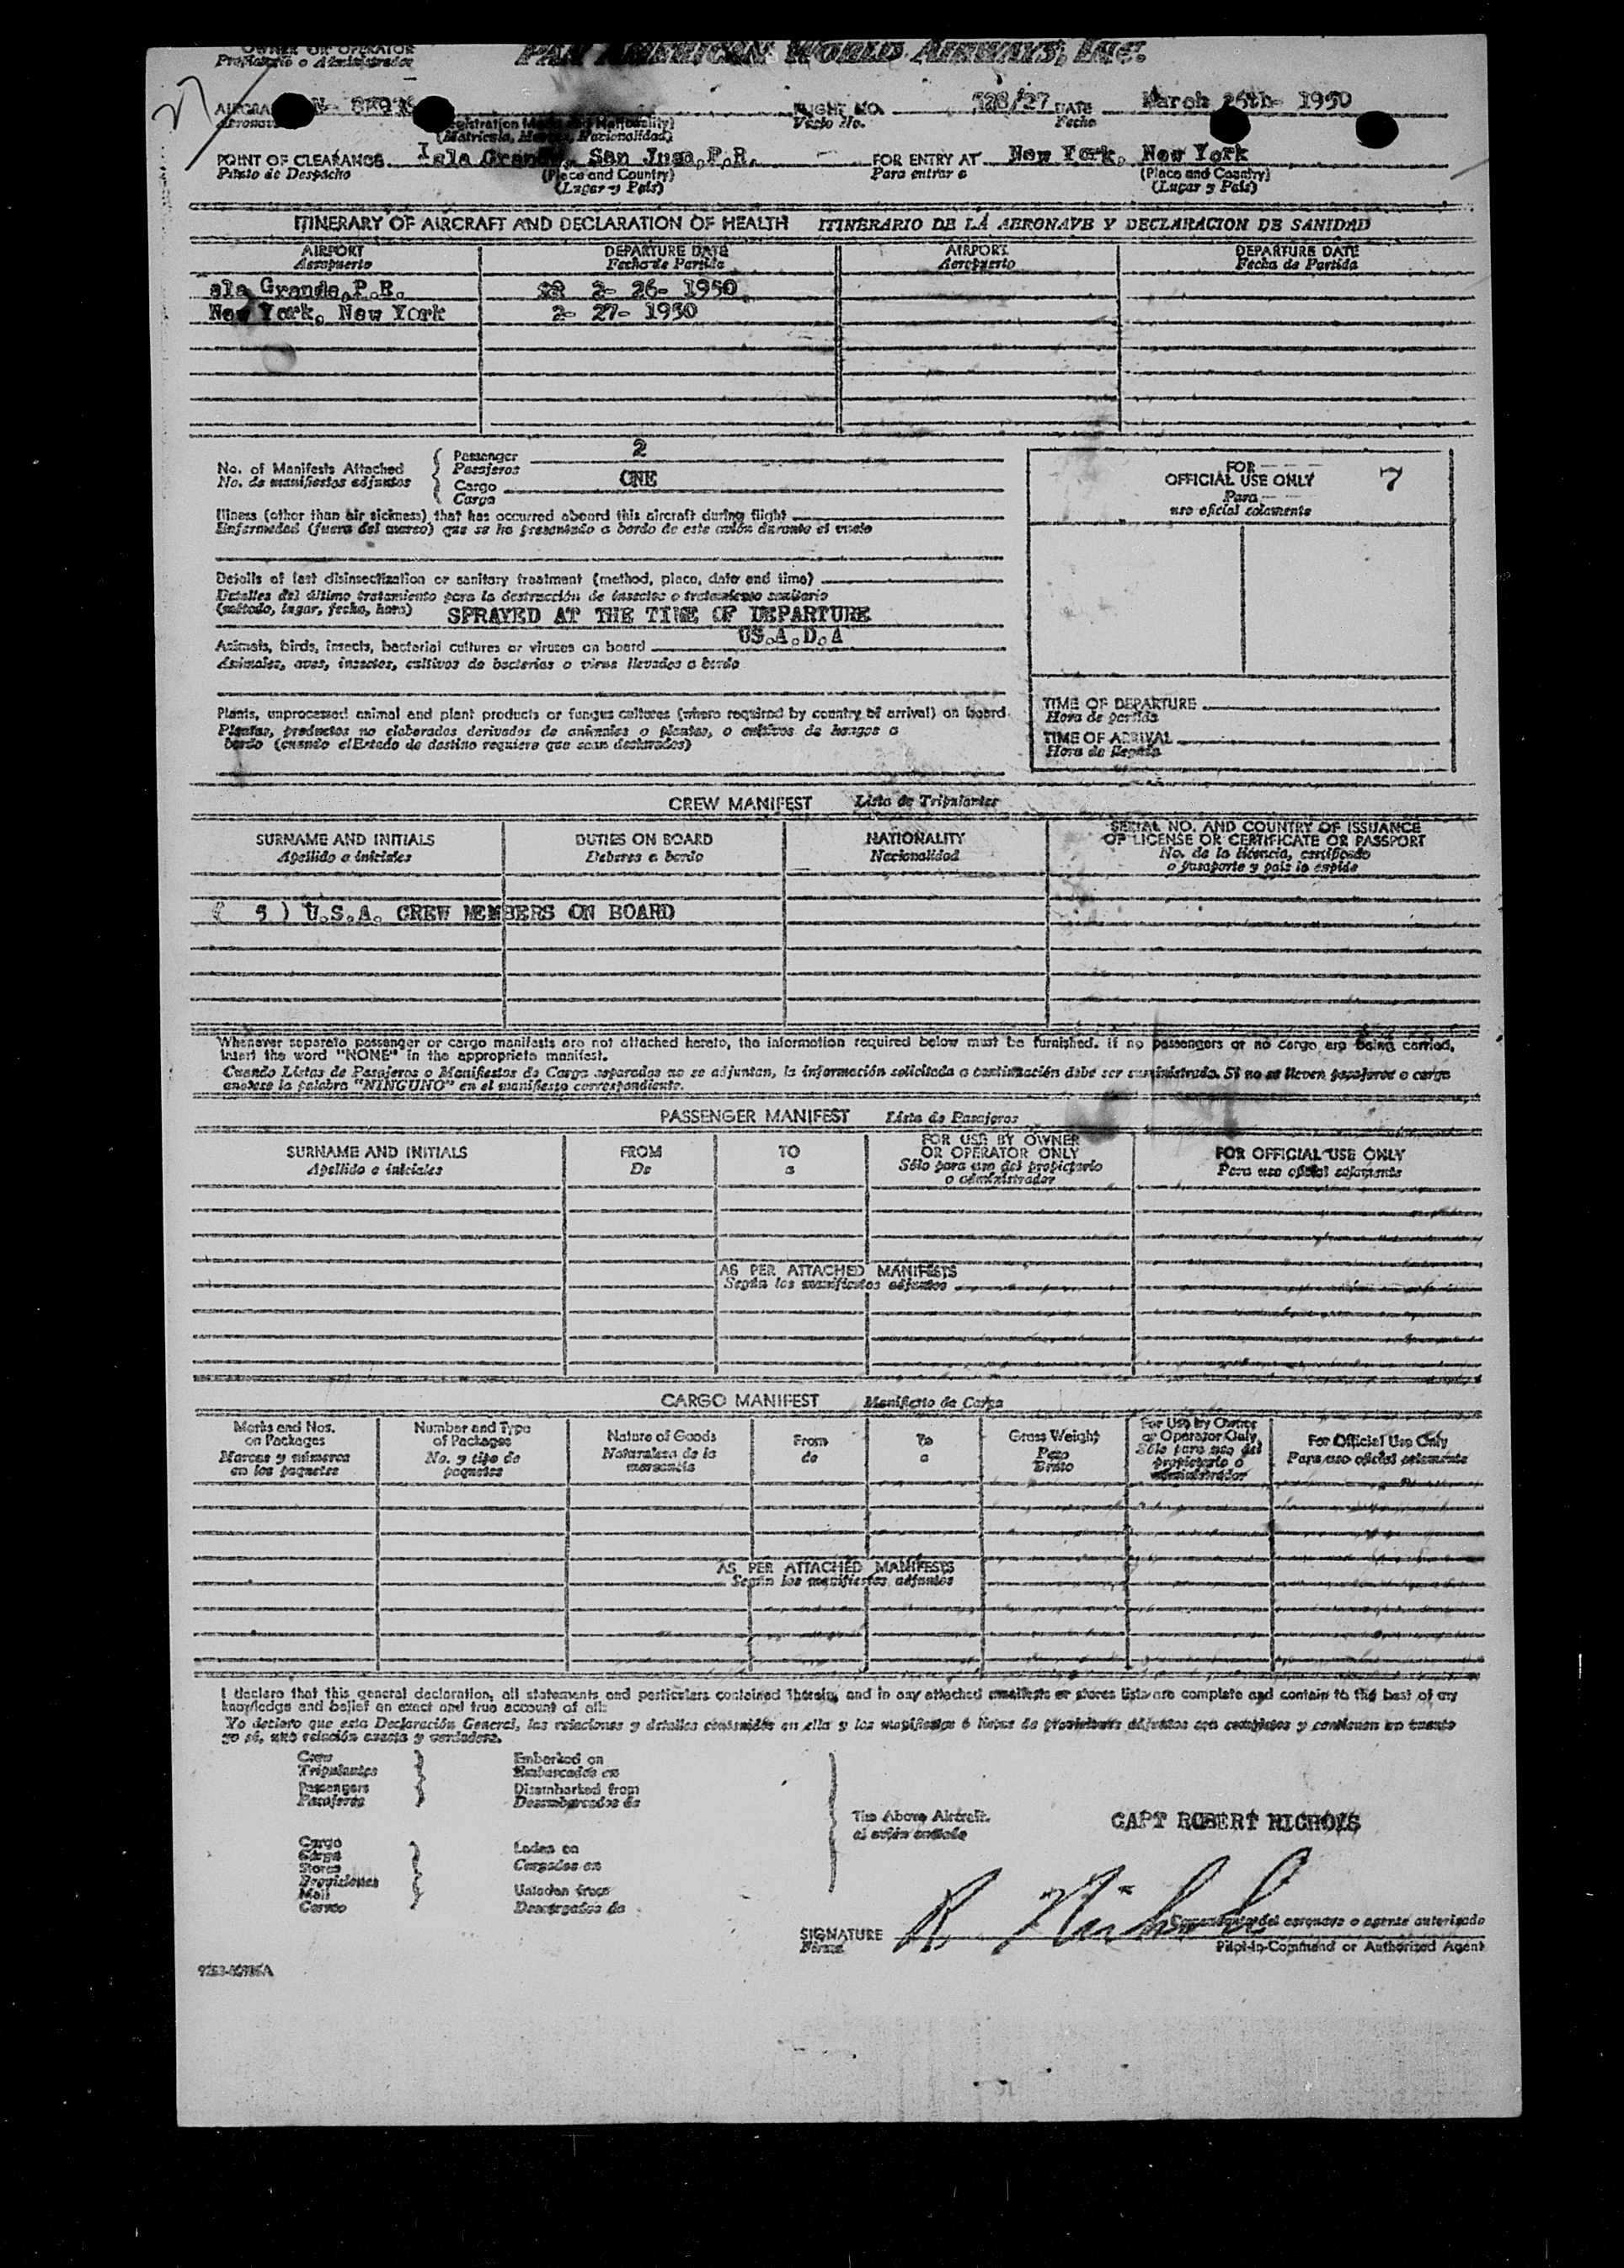 OWNER OR OPERATOR PAN AMERICAN WORLD AIRWAYS, INC.
Propietario o Administrador
FLIGHT NO. 128/27 DATE March 26th- 1950
Vuelo No. Fecha
(Registration Marks and Nationality)
(Matricula, Marcas, Nacionalidad)
POINT OF CLEARANCE Isla Grande, San Juan, P.R. FOR ENTRY AT New York, New York
Punto de Despacho (Place and Country) Para entrar a (Place and Country)
(Lugar y País) (Lugar y País)
ITINERARY OF AIRCRAFT AND DECLARATION OF HEALTH ITINERARIO DE LA AERONAVE Y DECLARACION DE SANIDAD
AIRPORT DEPARTURE DATE AIRPORT DEPARTURE DATE
Aeropuerto Fecha de Partida Aeropuerto Fecha de Partida
sla Grande, P.R. 2- 26- 1950
New York, New York 2- 27- 1950
No. of Manifests Attached Passenger 2
No. de manifiestos adjuntos Pasajeros
Cargo ONE
Carga
FOR 7
OFFICIAL USE ONLY
Para
uso oficial solamente
Illness (other than air sickness) that has occurred aboard this aircraft during flight
Enfermedad (fuera del mareo) que se ha presentado a bordo de este avión durante el vuelo
Details of last disinsectization or sanitary treatment (method, place, date and time)
Detalles del último tratamiento para la destrucción de insectos o tratamiento sanitario
(método, lugar, fecha, hora) SPRAYED AT THE TIME OF DEPARTURE
US.A.D.A
Animals, birds, insects, bacterial cultures or viruses on board
Animales, aves, insectos, cultivos de bacterias o virus llevados a bordo
Plants, unprocessed animal and plant products or fungus cultures (where required by country of arrival) on board
Plantas, productos no elaborados derivados de animales o plantas, o cultivos de hongos a
bordo (cuando el Estado de destino requiere que sean declarados)
TIME OF DEPARTURE
Hora de partida
TIME OF ARRIVAL
Hora de llegada
CREW MANIFEST Lista de Tripulantes
SURNAME AND INITIALS DUTIES ON BOARD NATIONALITY SERIAL NO. AND COUNTRY OF ISSUANCE
OF LICENSE OR CERTIFICATE OR PASSPORT
Apellido e iniciales Deberes a bordo Nacionalidad No. de la licencia, certificado
o pasaporte y país lo expide
( 5 ) U.S.A. CREW MEMBERS ON BOARD
Whenever separate passenger or cargo manifests are not attached hereto, the information required below must be furnished. If no passengers or no cargo are being carried,
insert the word "NONE" in the appropriate manifest.
Cuando Listas de Pasajeros o Manifiestos de Carga separados no se adjuntan, la información solicitada a continuación debe ser suministrada. Si no se lleven pasajeros o carga
anotese la palabra "NINGUNO" en el manifiesto correspondiente.
PASSENGER MANIFEST Lista de Pasajeros
SURNAME AND INITIALS FROM TO FOR USE BY OWNER
OR OPERATOR ONLY FOR OFFICIAL USE ONLY
Apellido e iniciales De a Sólo para uso del propietario
o administrador Para uso oficial solamente
AS PER ATTACHED MANIFESTS
Según los manifiestos adjuntos
CARGO MANIFEST Manifiesto de Carga
Marks and Nos.
on Packages
Marcas y números
en los paquetes
Number and Type
of Packages
No. y tipo de
paquetes
Nature of Goods
Naturaleza de la
mercancía
From
de
To
a
Gross Weight
Peso
Bruto
For Use by Owner
or Operator Only
Sólo para uso del
propietario o
administrador
For Official Use Only
Para uso oficial solamente
AS PER ATTACHED MANIFESTS
Según los manifiestos adjuntos
I declare that this general declaration, all statements and particulars contained therein, and in any attached manifests or stores lists are complete and contain to the best of my
knowledge and belief an exact and true account of all:
Yo declaro que esta Declaración General, las relaciones y detalles contenidos en ella y los manifiestos ó listas de provisiones adjuntos son completos y contienen en cuanto
yo sé, una relación exacta y verdadera.
Crew
Tripulantes
Passengers
Pasajeros
Embarked on
Embarcados en
Disembarked from
Desembarcados de
Cargo
Carga
Stores
Provisiones
Mail
Correo
Laden on
Cargados en
Unladen from
Descargados de
The Above Aircraft.
CAPT ROBERT NICHOLS
SIGNATURE R. Nichols
Firma
Comandante del aeronave o agente autorizado
Pilot-in-Command or Authorized Agent